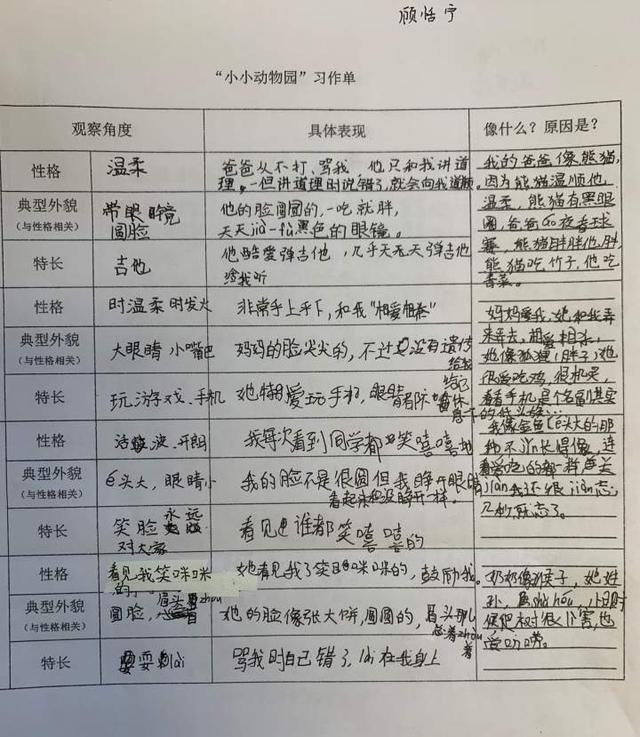 顾恬宁
“小小动物园”习作单
观察角度 具体表现 像什么？原因是？
性格 温柔 爸爸从不打、骂我 他只和我讲道
理，一但讲道理时说错了,就会向我道歉。
典型外貌 带眼镜 他的脸圆圆的,一吃就胖,
(与性格相关) 圆脸 天天jià-fù黑色的眼镜。
特长 吉他 他酷爱弹吉他，几乎天天弹吉他
给我听
我的爸爸像熊猫，
因为熊猫温顺他
温柔，熊猫有黑眼
圈，爸爸
熊猫胖胖他胖，
熊猫吃竹子，他吃
香菜。
性格 时温柔时发火 非常手上手下，和我“相爱相杀”
典型外貌 大眼睛 小嘴巴 妈妈的脸尖尖的，不过没有遗传
(与性格相关) 给我
特长 玩游戏、手机 她特爱玩手机，眼睛
妈妈爱我,她和我弄
来弄去，相爱相杀，
她像狐狸(胖子)她
很爱吃鸡，很机灵，
看看手机是个名副其实
性格 活泼、开朗 我每次看到同学都笑嘻嘻地
典型外貌 头大，眼睛小 我的脸不是很圆但我睁开眼睛
(与性格相关) 看起来和没睁开一样。
特长 笑脸永远 看见谁都笑嘻嘻的
对大家
我像金鱼
我还很jiàn忘，
几秒就忘了。
性格 看见我笑咪咪 她看见我了笑咪咪的，鼓励我。
的，
典型外貌 圆脸， 眉头zhòu 她的脸像张大饼,圆圆的，眉头那儿
(与性格相关) 总着zhòu
着
特长 耍lài 骂我时自己错了，lài在我身上
奶奶像猴子，她姓
孙，属shǔ hóu，小时
候爬树很厉害,也
爱叨唠。